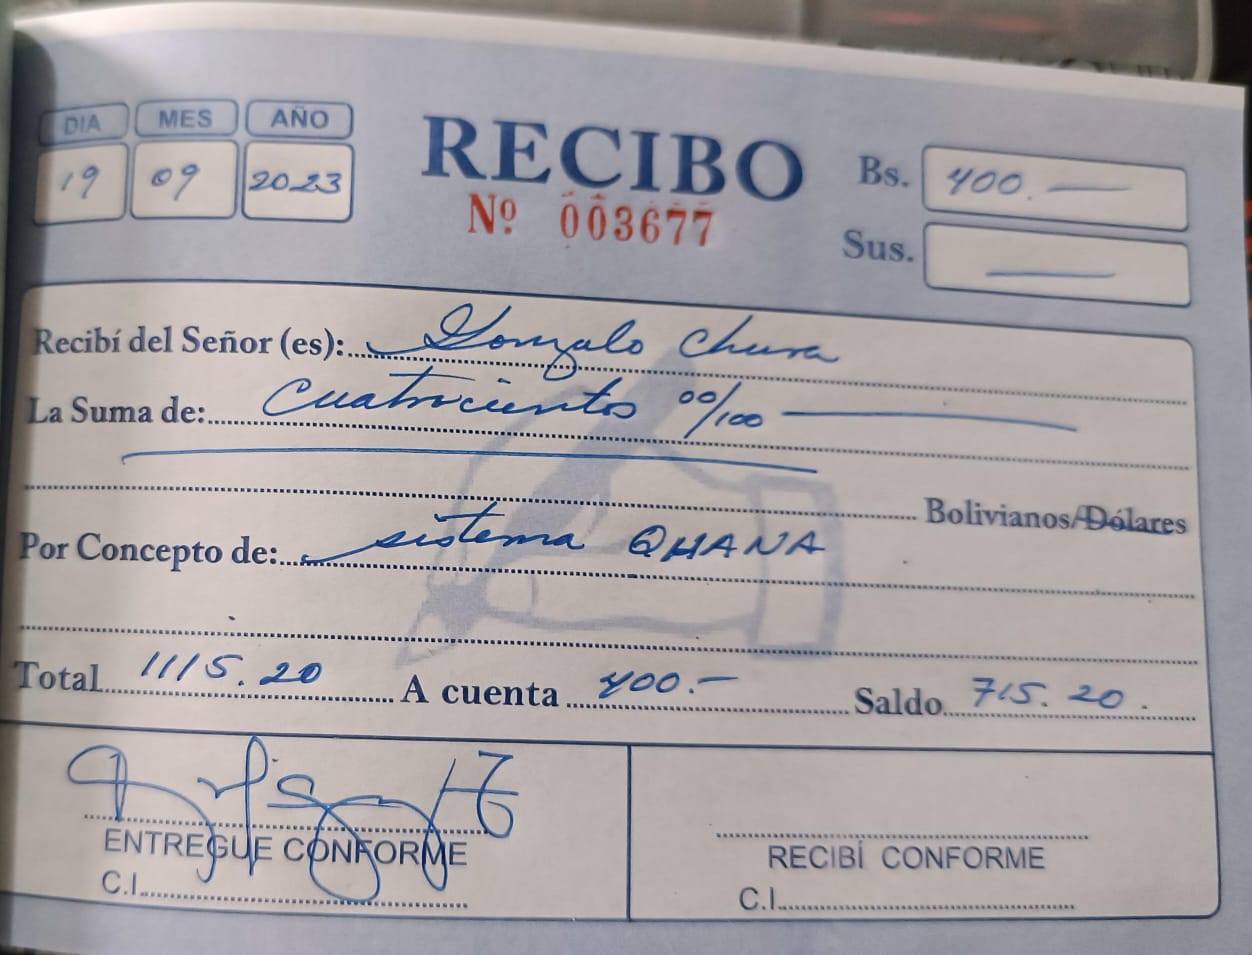 DIA MES AÑO
19 09 2023
RECIBO
Nº 003677
Bs. 400.—
Sus. —
Recibí del Señor (es): Gonzalo Chura
La Suma de: Cuatrocientos 00/100
Bolivianos/Dólares
Por Concepto de: sistema QHANA
Total 1115.20 A cuenta 400.- Saldo 715.20.
ENTREGUE CONFORME
C.I.
RECIBÍ CONFORME
C.I.